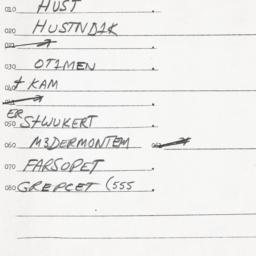 010 HUST
020 HUSTND1K
030 OT1MEN
+ KAM
ER
050 S+WUKERT
060 M3DERMONTEM
070 FARSOPET
080 GREPCET (555